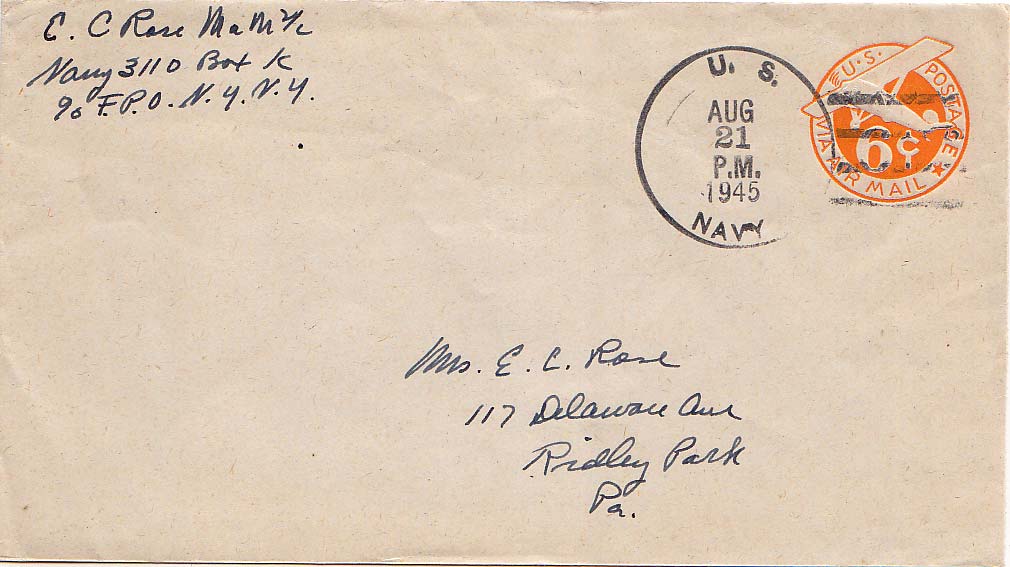 E. C Rose MaM 1/c
Navy 3110 Box K
℅ F.P.O. N.Y. N.Y.
U. S.
AUG
21
P.M.
1945
NAVY
U.S. POSTAGE
6¢
VIA AIR MAIL
Mrs. E. C. Rose
117 Delaware Ave
Ridley Park
Pa.